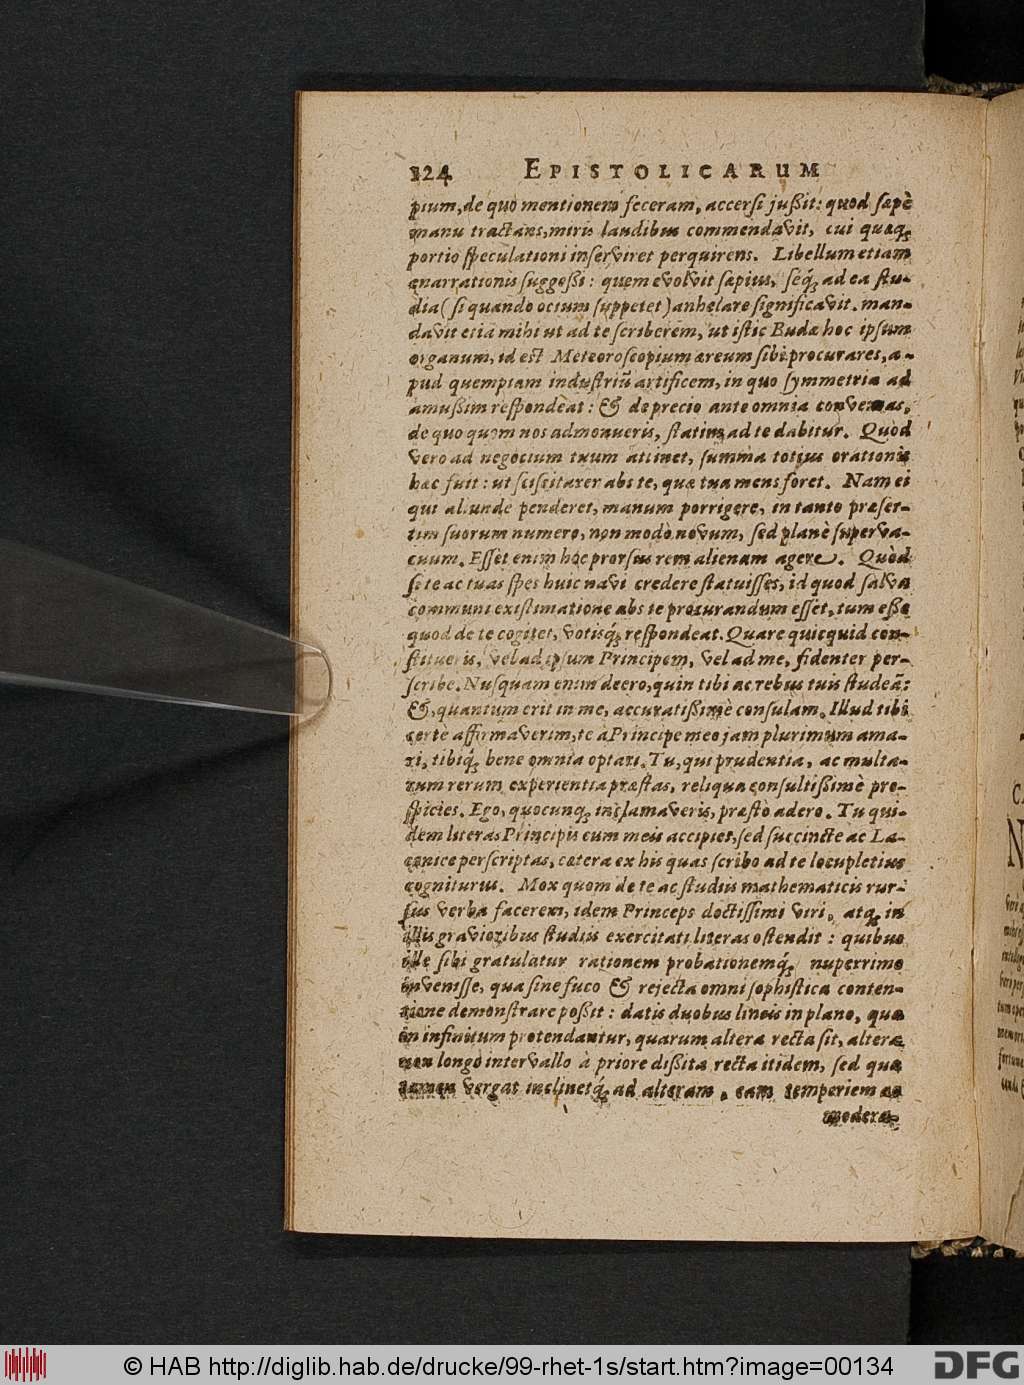 124 EPISTOLICARUM
pium, de quo mentionem feceram, accersi jußit: quod sæpè
manu tractans, miris laudibus commendavit, cui quæq;
portio speculationi inserviret perquirens. Libellum etiam
enarrationis suggeßi: quem evolvit sæpius, seq́; ad ea stu-
dia (si quando ocium suppetet) anhelare significavit. man-
davit etiã mihi ut ad te scriberem, ut istic Budæ hoc ipsum
organum, id est Meteoroscopium æreum sibi procurares, a-
pud quempiam industriũ artificem, in quo symmetria ad
amußim respondeat: & de precio ante omnia convenias,
de quo quom nos admonueris, statim ad te dabitur. Quòd
vero ad negocium tuum attinet, summa totius orationis
hæc fuit: ut sciscitarer abs te, quæ tua mens foret. Nam ei
qui aliunde penderet, manum porrigere, in tanto præser-
tim suorum numero, non modò novum, sed planè superva-
cuum. Esset enim hoc prorsus rem alienam agere. Quòd
si te ac tuas spes huic navi credere statuisses, id quod salva
communi existimatione abs te procurandum esset, tum esse
quod de te cogitet, votisq́; respondeat. Quare quicquid con-
stitueris, vel ad ipsum Principem, vel ad me, fidenter per-
scribe. Nusquam enim deero, quin tibi ac rebus tuis studeã:
&, quantum erit in me, accuratißimè consulam. Illud tibi
certè affirmaverim, te à Principe meo jam plurimum ama-
ri, tibiq́; bene omnia optari. Tu, qui prudentia, ac multa-
rum rerum experientia præstas, reliqua consultißimè pro-
spicies. Ego, quocunq; inclamaveris, præstò adero. Tu qui-
dem literas Principis cum meis accipies, sed succincte ac La-
conice perscriptas, cætera ex his quas scribo ad te locupletius
cogniturus. Mox quom de te ac studiis mathematicis rur-
sus verba facerem, idem Princeps doctissimi viri, atq; in
illis gravioribus studiis exercitati literas ostendit: quibus
ille sibi gratulatur rationem probationemq́; nuperrime
invenisse, qua sine fuco & rejecta omni sophistica conten-
tione demonstrare poßit: datis duobus lineis in plano, quæ
in infinitum protendantur, quarum altera recta sit, altera
non longo intervallo à priore dißita recta itidem, sed quæ
tamen vergat inclinetq́; ad alteram, eam temperiem ac
modera-
© HAB http://diglib.hab.de/drucke/99-rhet-1s/start.htm?image=00134 DFG